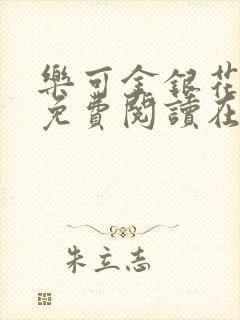 樂可金銀花
免費閱讀在
朱立志